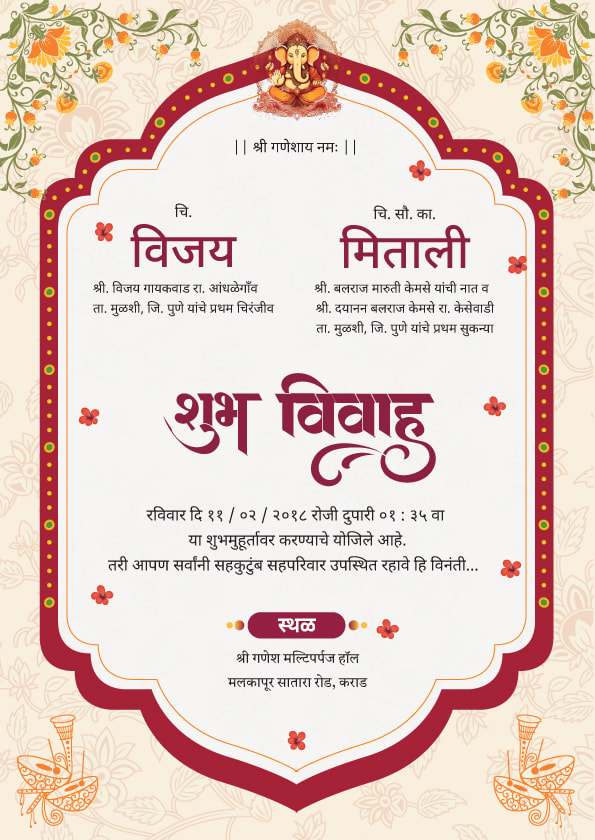 || श्री गणेशाय नमः ||
चि.
विजय
श्री. विजय गायकवाड रा. आंधळेगाँव
ता. मुळशी, जि. पुणे यांचे प्रथम चिरंजीव
चि. सौ. का.
मिताली
श्री. बलराज मारुती केमसे यांची नात व
श्री. दयानन बलराज केमसे रा. केसेवाडी
ता. मुळशी, जि. पुणे यांचे प्रथम सुकन्या
शुभ विवाह
रविवार दि ११ / ०२ / २०१८ रोजी दुपारी ०१ : ३५ वा
या शुभमुहूर्तावर करण्याचे योजिले आहे.
तरी आपण सर्वांनी सहकुटुंब सहपरिवार उपस्थित रहावे हि विनंती...
स्थळ
श्री गणेश मल्टिपर्पज हॉल
मलकापूर सातारा रोड, कराड